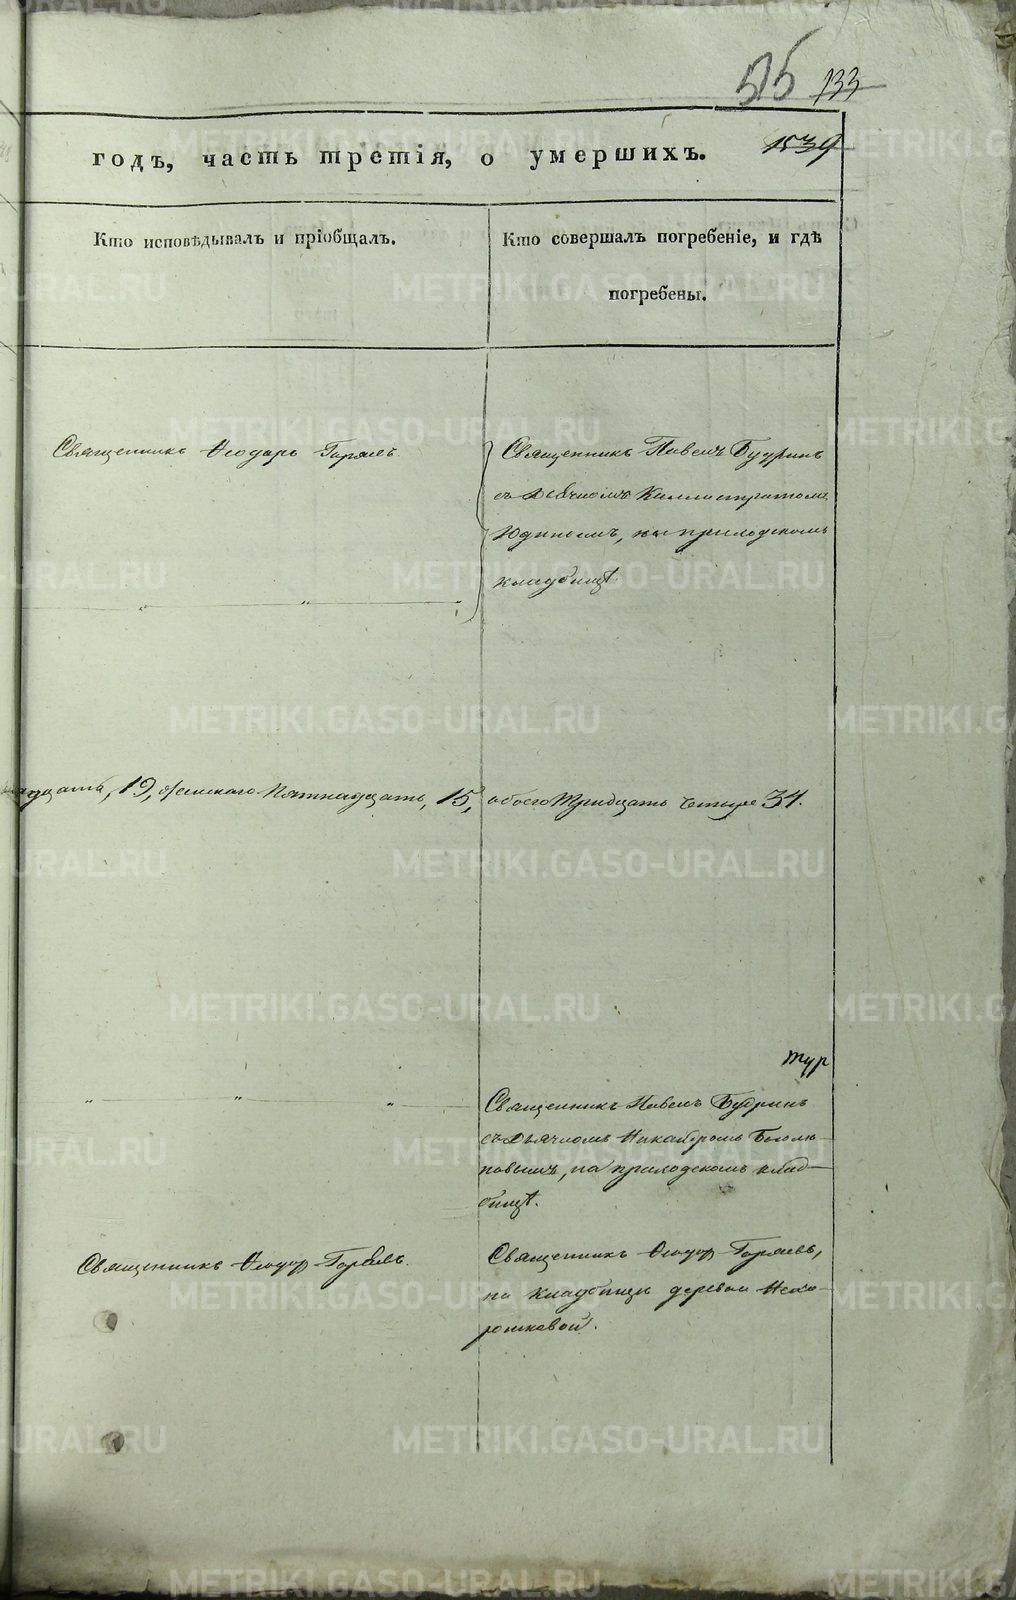 515 133
годъ, часть третія, о умершихъ. 1539
Кто исповѣдывалъ и пріобщалъ.
Кто совершалъ погребеніе, и гдѣ
погребены.
Священникъ Ѳеодоръ Горяевъ
Священникъ Павелъ Будринъ
съ Дьячкомъ Каллистратомъ
Юдинымъ, на приходскомъ
кладбищѣ
надцать, 19, женскаго Пятнадцать, 15, обоего Тридцать четыре 34.
тур
Священникъ Павелъ Будринъ
съ Дьячкомъ Никандромъ Боголю-
повымъ, на приходскомъ клад-
бищѣ.
Священникъ Ѳеодоръ Горяевъ.
Священникъ Ѳеодоръ Горяевъ,
на кладбищѣ деревни Нехо-
рошковой.
METRIKI.GASO-URAL.RU